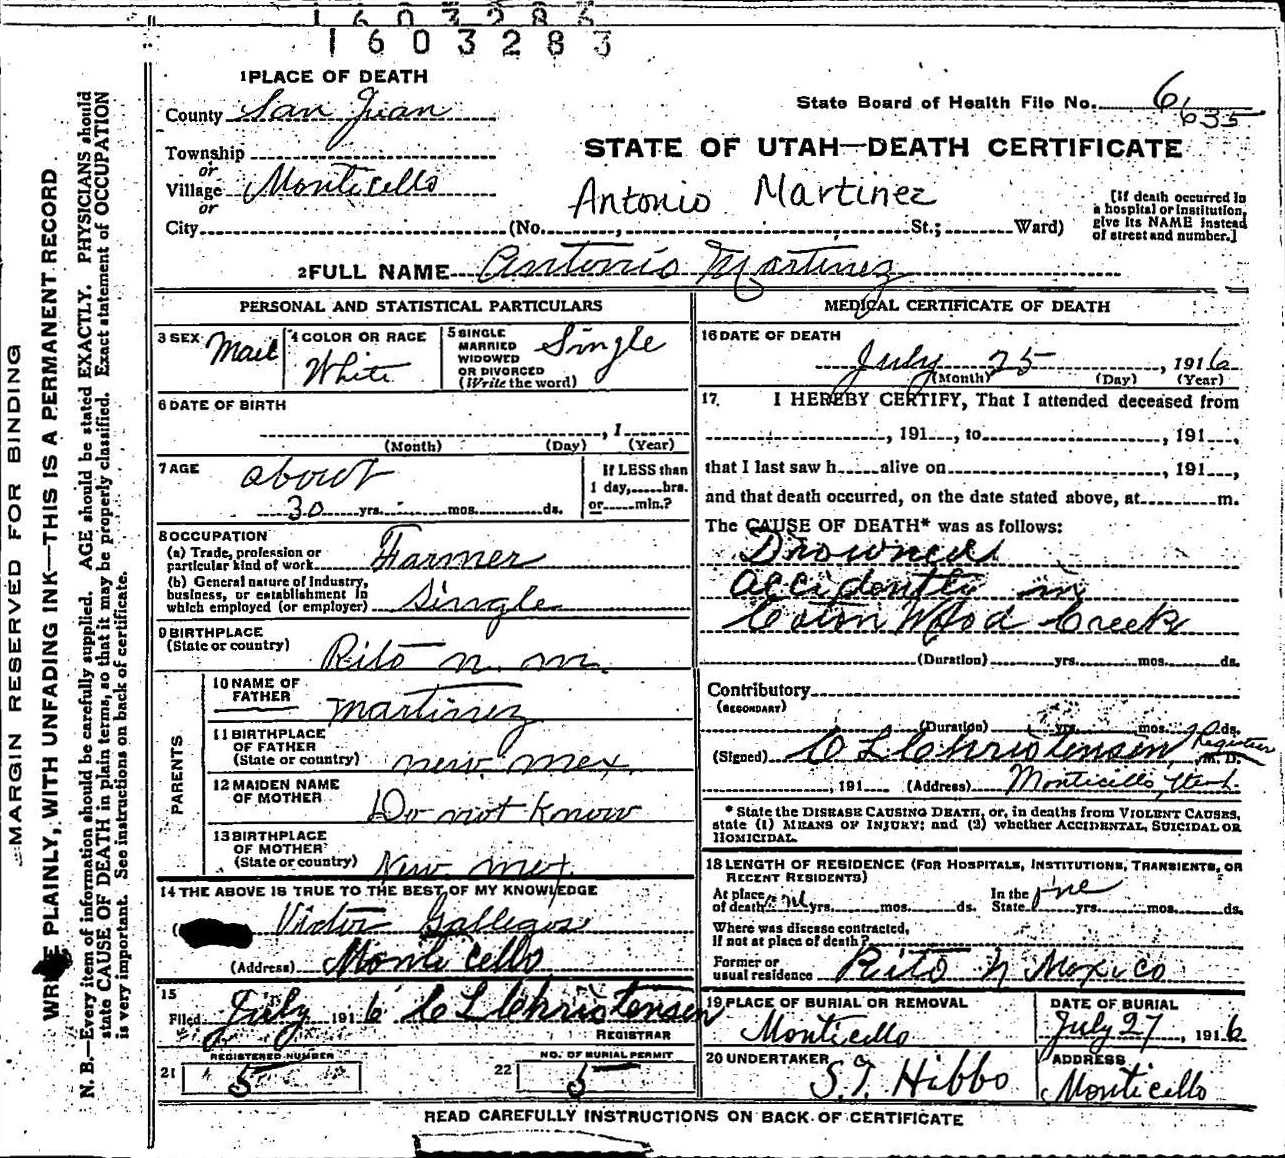 1603283
1603283
1 PLACE OF DEATH
County San Juan
State Board of Health File No. 6
635
Township
or
Village Monticello
or
City (No. , St.; Ward)
STATE OF UTAH—DEATH CERTIFICATE
Antonio Martinez
[If death occurred in
a hospital or institution,
give its NAME instead
of street and number.]
2 FULL NAME Antonio Martinez
PERSONAL AND STATISTICAL PARTICULARS
3 SEX Male
4 COLOR OR RACE
White
5 SINGLE
MARRIED
WIDOWED
OR DIVORCED
(Write the word)
Single
6 DATE OF BIRTH
, 1
(Month) (Day) (Year)
7 AGE about
30 yrs. mos. ds.
If LESS than
1 day, hrs.
or min.?
8 OCCUPATION
(a) Trade, profession or
particular kind of work Farmer
(b) General nature of Industry,
business, or establishment in
which employed (or employer) Single
9 BIRTHPLACE
(State or country)
Rito N. M.
PARENTS
10 NAME OF
FATHER
Martinez
11 BIRTHPLACE
OF FATHER
(State or country) New. Mex.
12 MAIDEN NAME
OF MOTHER Do not Know
13 BIRTHPLACE
OF MOTHER
(State or country) New. Mex
14 THE ABOVE IS TRUE TO THE BEST OF MY KNOWLEDGE
( Victor Gallegos
(Address) Monticello
15
Filed July 1916 C L Christensen
REGISTRAR
REGISTERED NUMBER
21 5
NO. OF BURIAL PERMIT
22 5
MEDICAL CERTIFICATE OF DEATH
16 DATE OF DEATH
July 25 , 1916
(Month) (Day) (Year)
17. I HEREBY CERTIFY, That I attended deceased from
, 191 , to , 191 ,
that I last saw h alive on , 191 ,
and that death occurred, on the date stated above, at m.
The CAUSE OF DEATH* was as follows:
Drowned
accidently in
Coton Wood Creek
(Duration) yrs. mos. ds.
Contributory
(SECONDARY)
(Duration) yrs. mos. ds.
(Signed) C L Christensen, Registrar M. D.
, 191 (Address) Monticello, Utah.
* State the DISEASE CAUSING DEATH, or, in deaths from VIOLENT CAUSES,
state (1) MEANS OF INJURY; and (2) whether ACCIDENTAL, SUICIDAL OR
HOMICIDAL.
18 LENGTH OF RESIDENCE (FOR HOSPITALS, INSTITUTIONS, TRANSIENTS, OR
RECENT RESIDENTS)
At place
of death yrs. mos. ds.
In the
State yrs. mos. ds.
Where was disease contracted,
If not at place of death?
Former or
usual residence Rito N Mexico
19 PLACE OF BURIAL OR REMOVAL
Monticello
DATE OF BURIAL
July 27, 1916
20 UNDERTAKER
S. T. Hibbo
ADDRESS
Monticello
READ CAREFULLY INSTRUCTIONS ON BACK OF CERTIFICATE
MARGIN RESERVED FOR BINDING
WRITE PLAINLY, WITH UNFADING INK—THIS IS A PERMANENT RECORD.
N. B.—Every item of information should be carefully supplied. AGE should be stated EXACTLY. PHYSICIANS should
state CAUSE OF DEATH in plain terms, so that it may be properly classified. Exact statement of OCCUPATION
is very important. See instructions on back of certificate.